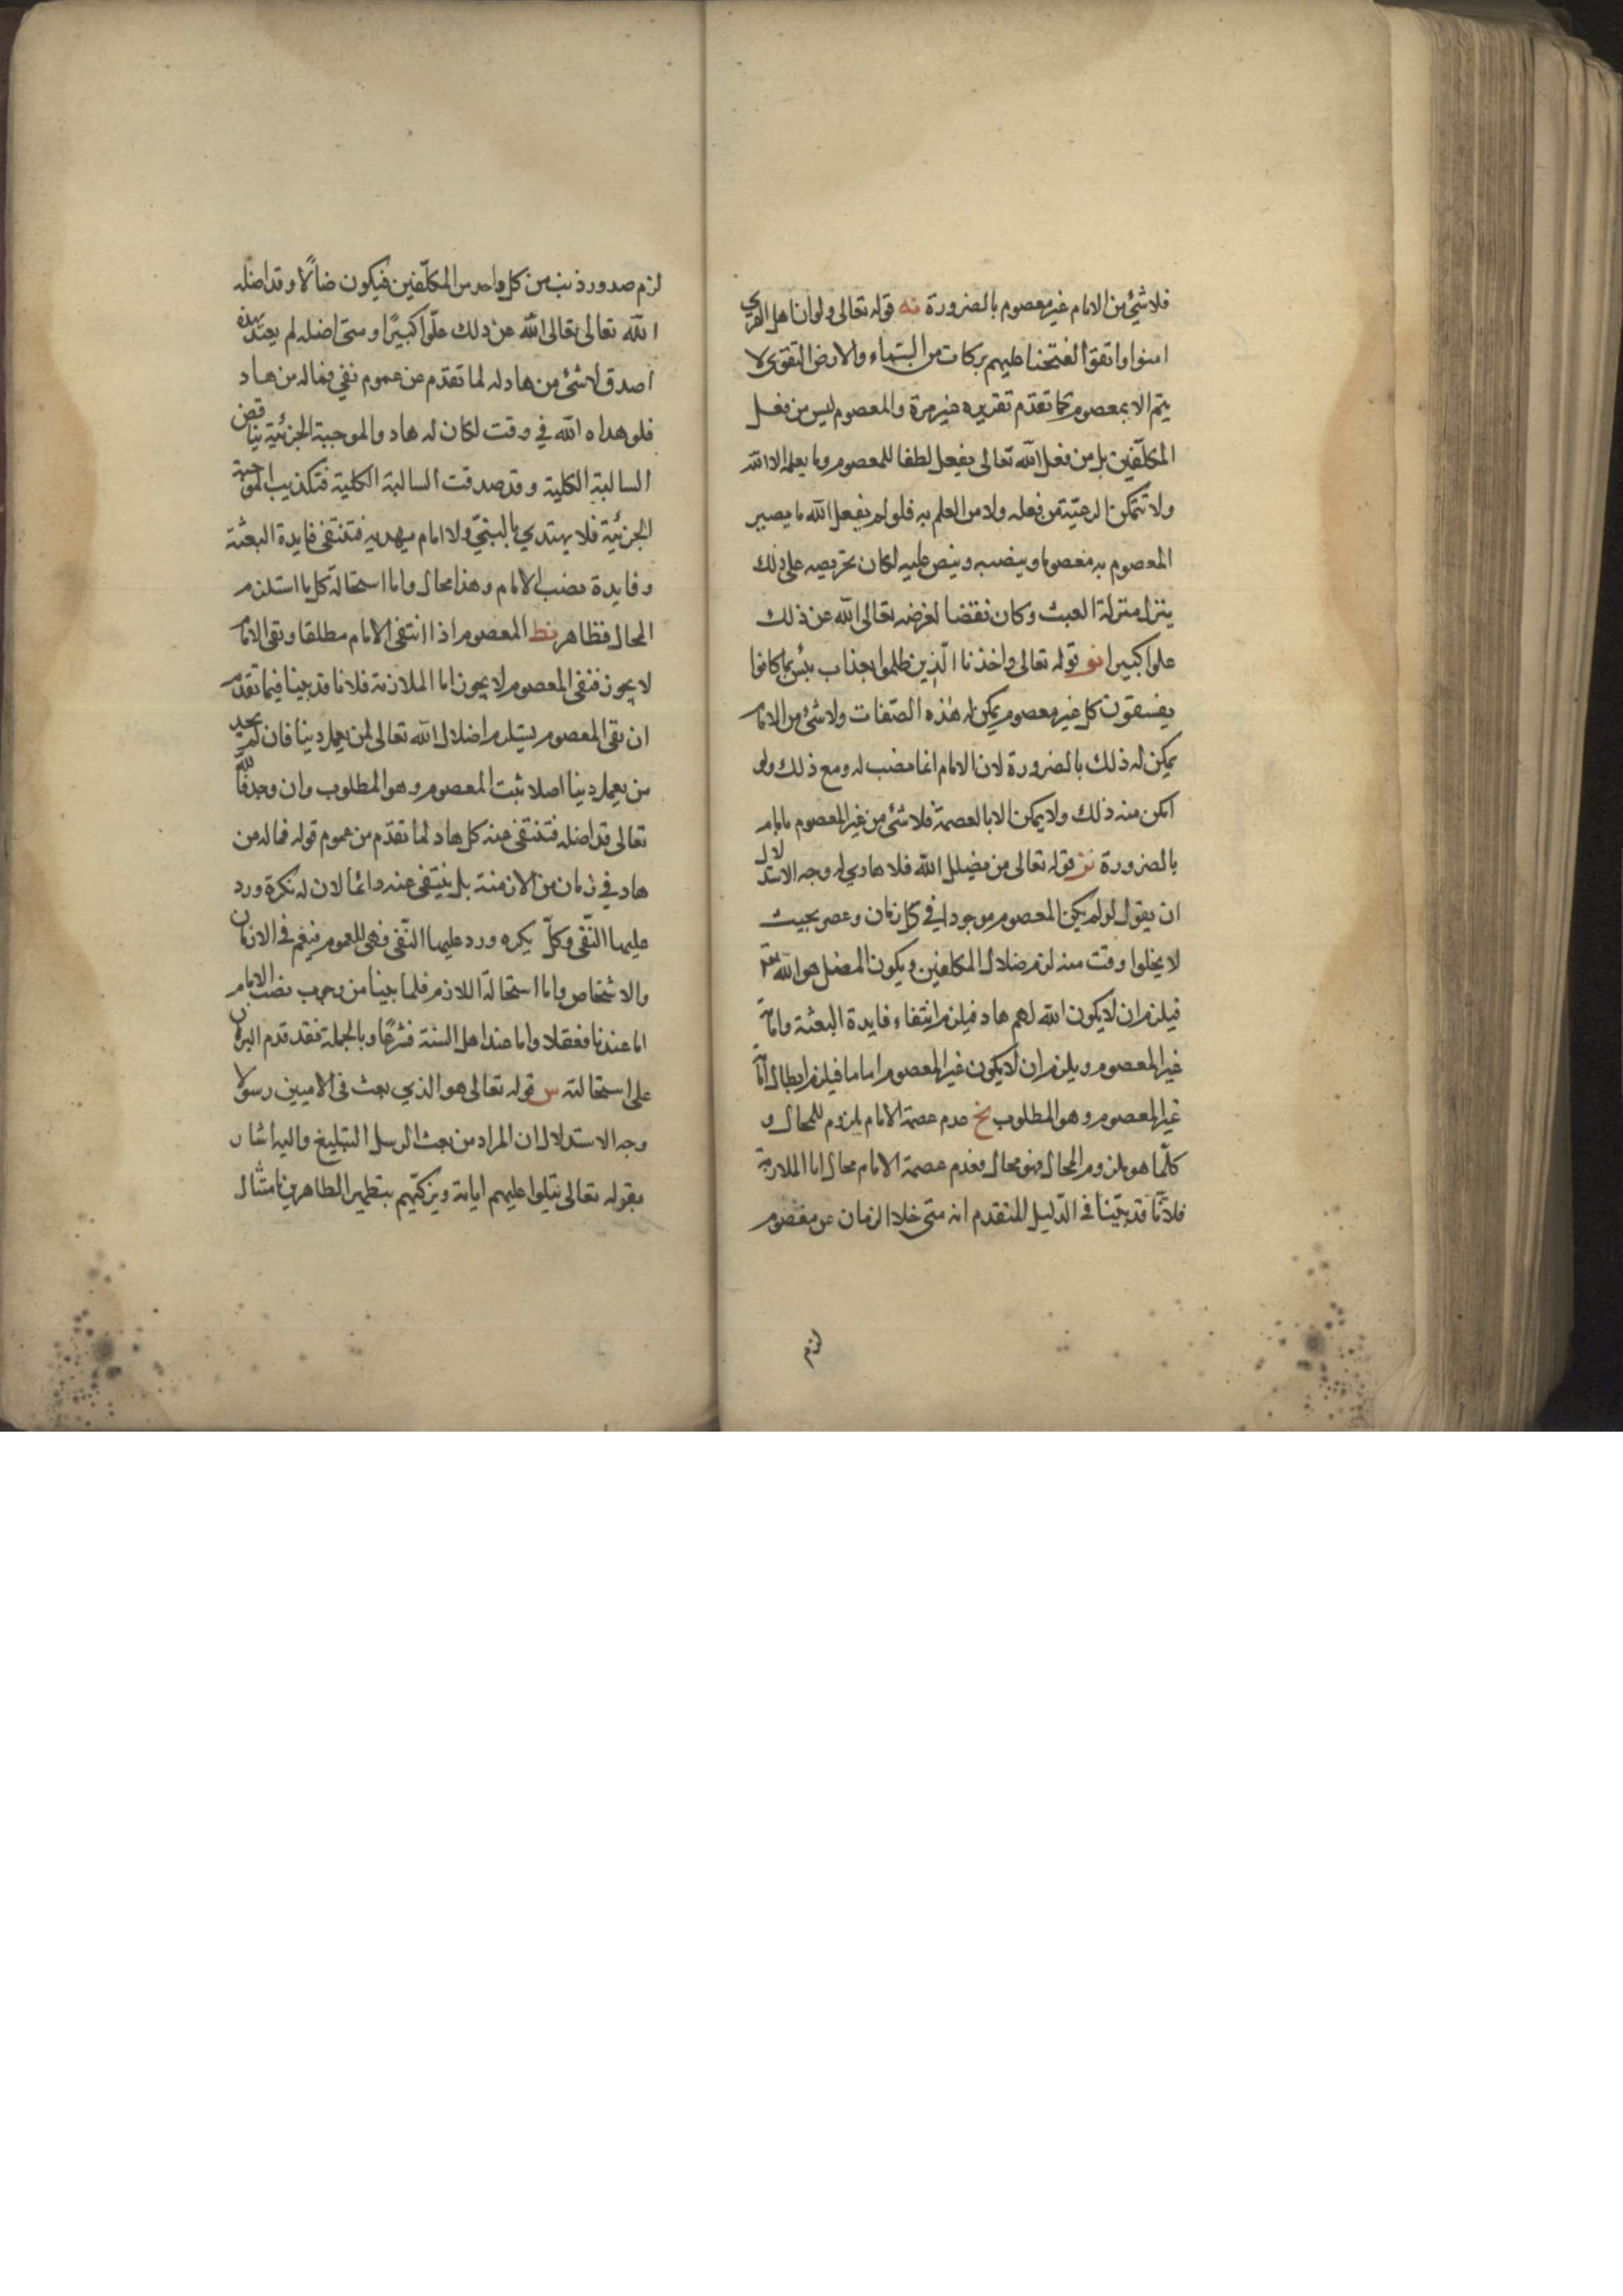 فلا شئ من الامام غير معصوم بالضرورة نه قوله تعالى ولو ان اهل القرى
امنوا واتقوا لفتحنا عليهم بركات من السماء والارض التقوى لا
يتم الا بمعصوم كما تقدم تقديره غير مرة والمعصوم ليس من فعل
المكلفين بل من فعل الله تعالى يفعل لطفا للمعصوم وما يعلمه الا الله
ولا تتمكن الرعية من فعله ولا من العلم به فلو لم يفعل الله ما يصير
المعصوم به معصوما وينصبه وينص عليه لكان تحريصه على ذلك
ينزل منزلة العبث وكان نقضا لغرضه تعالى الله عن ذلك
علوا كبيرا نو قوله تعالى واخذنا الذين ظلموا بعذاب بئس بما كانوا
يفسقون كل غير معصوم يمكن له هذه الصفات ولا شئ من الامام
يمكن له ذلك بالضرورة لان الامام انما نصب له ومع ذلك ولو
امكن منه ذلك ولا يمكن الا بالعصمة فلا شئ من غير المعصوم بامام
بالضرورة نز قوله تعالى من يضلل الله فلا هادي له وجه الاستدلال
ان يقول لو لم يكن المعصوم موجودا في كل زمان وعصر بحيث
لا يخلوا وقت منه لزم ضلال المكلفين ويكون المضل هو الله تعالى
فيلزم ان لا يكون الله لهم هاد فيلزم انتفاء فايدة البعثة وامامة
غير المعصوم ويلزم ان لا يكون غير المعصوم اماما فيلزم ابطال امامة
غير المعصوم وهو المطلوب نح عدم عصمة الامام ملزوم للمحال و
كلما هو ملزوم المحال فهو محال فعدم عصمة الامام محال اما الملازمة
فلانا قد بينا في الدليل المتقدم انه متى خلا الزمان عن معصوم
لزم
لزم صدور ذنب من كل واحد من المكلفين فيكون ضالا وقد اضله
الله تعالى تعالى الله عن ذلك علوا كبيرا ومتى اضله لم يهتد بهذه
اصدق لا شئ من هاد له لما تقدم عن عموم نفي فماله من هاد
فلو هداه الله في وقت لكان له هاد والموجبة الجزئية يناقض
السالبة الكلية وقد صدقت السالبة الكلية فتكذيب الموجبة
الجزئية فلا يهتدي بالنبي ولا امام يهديه فتنتفى فايدة البعثة
وفايدة نصب الامام وهذا محال واما استحالة كل ما استلزم
المحال فظاهر نط المعصوم اذا انتفى الامام مطلقا ونفى الامام
لا يجوز فنفى المعصوم لا يجوز اما الملازمة فلانا قد بينا فيما تقدم
ان نفى المعصوم يستلزم اضلال الله تعالى لمن يعمل دينا فان لم يجد
من يعمل دينا اصلا ثبت المعصوم وهو المطلوب وان وجد فالله
تعالى قد اضله فتنتفى عنه كل هاد لما تقدم من عموم قوله فما له من
هاد في زمان من الازمنة بل ينتفى عنه دائما لان له نكرة ورد
عليها النفى وكل نكره ورد عليها النفى فهى للعموم فيعم في الازمان
والاشخاص واما استحالة اللازم فلما بينا من وجوب نصب الامام
اما عندنا فعقلا واما عند اهل السنة فشرعا وبالجملة فقد قدم البرهان
على استحالته س قوله تعالى هو الذي بعث في الاميين رسولا
وجه الاستدلال ان المراد من بعث الرسل التبليغ واليه اشار
بقوله تعالى يتلوا عليهم اياته ويزكيهم بتطهير الطاهرين امتثال